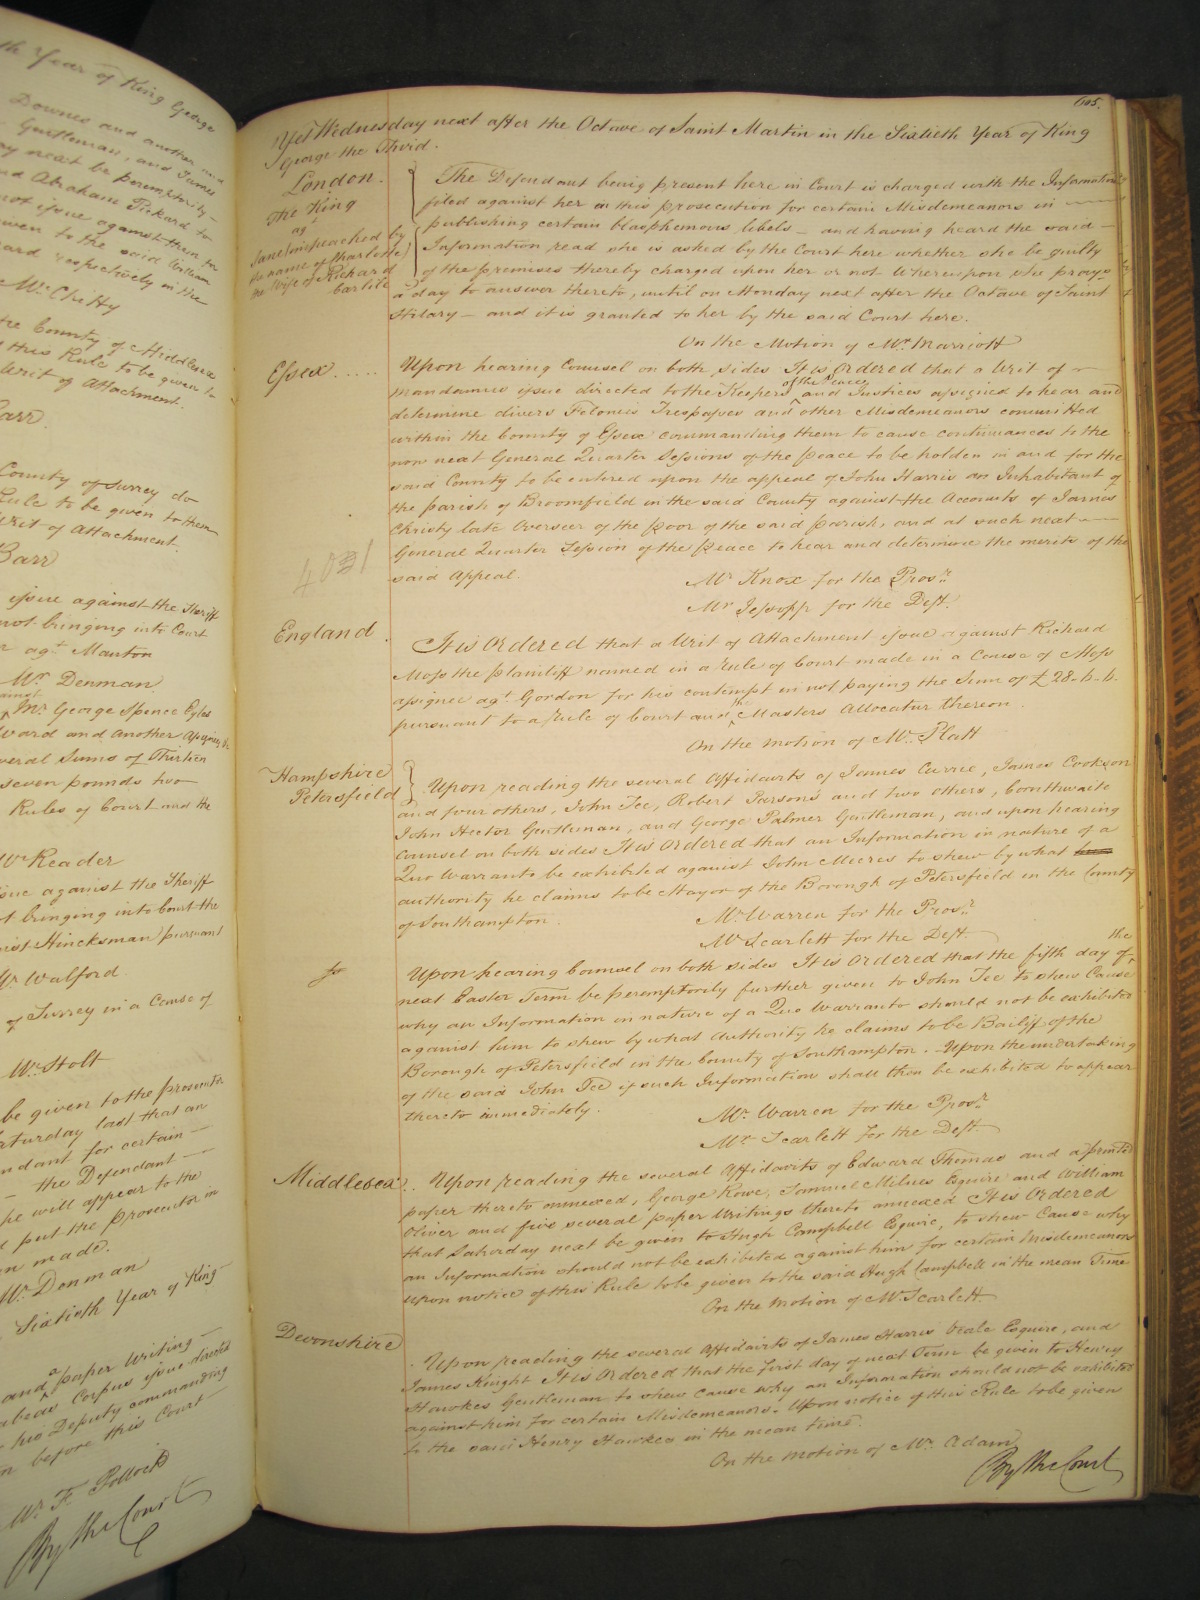 th Year of King George
Downes and another and
Gentleman, and James
ay next be peremptorily
nd Abraham Pickard to
not issue against them for
given to the said William
ard respectively in the
Mr. Chitty
the County of Middlesex
this Rule to be given to
Writ of Attachment.
Carr.
County of Surrey do
Rule to be given to them
Writ of Attachment.
Barr
issue against the Sheriff
not bringing into Court
agt. Manton
Mr. Denman
Mr. George Spence Eyles
Ward and another Assignees &c
several Sums of Thirteen
seven pounds two
Rules of Court and the
Mr Reader
issue against the Sheriff
t bringing into Court the
Hincksman pursuant
Mr Walford
of Surrey in a Cause of
Mr. Holt
be given to the prosecutor
Saturday last that an
ndant for certain
the Defendant
he will appear to the
d put the prosecutor in
n made.
Mr. Denman
Sixtieth Year of King
and a paper Writing
abeas Corpus issue directed
his Deputy commanding
before this Court
Mr. F. Pollock
By the Court
605.
Yet Wednesday next after the Octave of Saint Martin in the Sixtieth Year of King
George the Third.
London.
The King
agt
Jane (impeached by
the name of Charlotte)
the Wife of Richard
Carlile
The Defendant being present here in Court is charged with the Information
filed against her in this prosecution for certain Misdemeanors in
publishing certain blasphemous libels – and having heard the said
Information read she is asked by the Court here whether she be guilty
of the premises thereby charged upon her or not Whereupon she prays
a day to answer thereto, until on Monday next after the Octave of Saint
Hilary – and it is granted to her by the said Court here.
On the Motion of Mr. Marriott
Essex.....
Upon hearing Counsel on both sides It is Ordered that a Writ of
Mandamus issue directed to the Keepers of the Peace and Justices assigned to hear and
determine divers Felonies Trespasses and other Misdemeanors committed
within the County of Essex commanding them to cause continuances to the
now next General Quarter Sessions of the peace to be holden in and for the
said County to be entered upon the appeal of John Harris an Inhabitant of
the parish of Broomfield in the said County against the Accounts of James
Christy late Overseer of the poor of the said parish, and at such next
General Quarter Session of the peace to hear and determine the merits of the
said Appeal.
4031
Mr Knox for the Prosr.
Mr Jessopp for the Deft.
England.
It is Ordered that a Writ of Attachment issue against Richard
Moss the plaintiff named in a rule of Court made in a Cause of Moss
assignee agt. Gordon for his contempt in not paying the Sum of £28.6.6.
pursuant to a Rule of Court and the Masters Allocatur thereon.
On the motion of Mr. Platt
Hampshire
Petersfield
Upon reading the several Affidavits of James Currie, James Cookson
and four others, John Tee, Robert Parsons and two others, Cornthwaite
John Hector Gentleman, and George Palmer Gentleman, and upon hearing
Counsel on both sides It is Ordered that an Information in nature of a
Quo Warranto be exhibited against John Meeres to shew by what
authority he claims to be Mayor of the Borough of Petersfield in the County
of Southampton.
Mr. Warren for the Prosr.
Mr Scarlett for the Deft.
Upon hearing Counsel on both sides It is Ordered that the fifth day of the
next Easter Term be peremptorily further given to John Tee to shew Cause
why an Information in nature of a Quo Warranto should not be exhibited
against him to shew by what Authority he claims to be Bailiff of the
Borough of Petersfield in the County of Southampton. – Upon the undertaking
of the said John Tee if such Information shall then be exhibited to appear
thereto immediately.
Mr. Warren for the Prosr.
Mr. Scarlett for the Deft.
Middlesex..
Upon reading the several Affidavits of Edward Thomas and a printed
paper thereto annexed, George Rowe, Samuel Milnes Esquire and William
Oliver and five several paper Writings thereto annexed It is Ordered
that Saturday next be given to Hugh Campbell Esquire, to shew Cause why
an Information should not be exhibited against him for certain Misdemeanors
Upon notice of this Rule to be given to the said Hugh Campbell in the mean Time
On the Motion of Mr. Scarlett
Devonshire
Upon reading the several Affidavits of James Harris Veale Esquire, and
James Knight It is Ordered that the first day of next Term be given to Henry
Hawkes Gentleman to shew cause why an Information should not be exhibited
against him for certain Misdemeanors. Upon notice of this Rule to be given
to the said Henry Hawkes in the mean time.
On the motion of Mr. Adam
By the Court